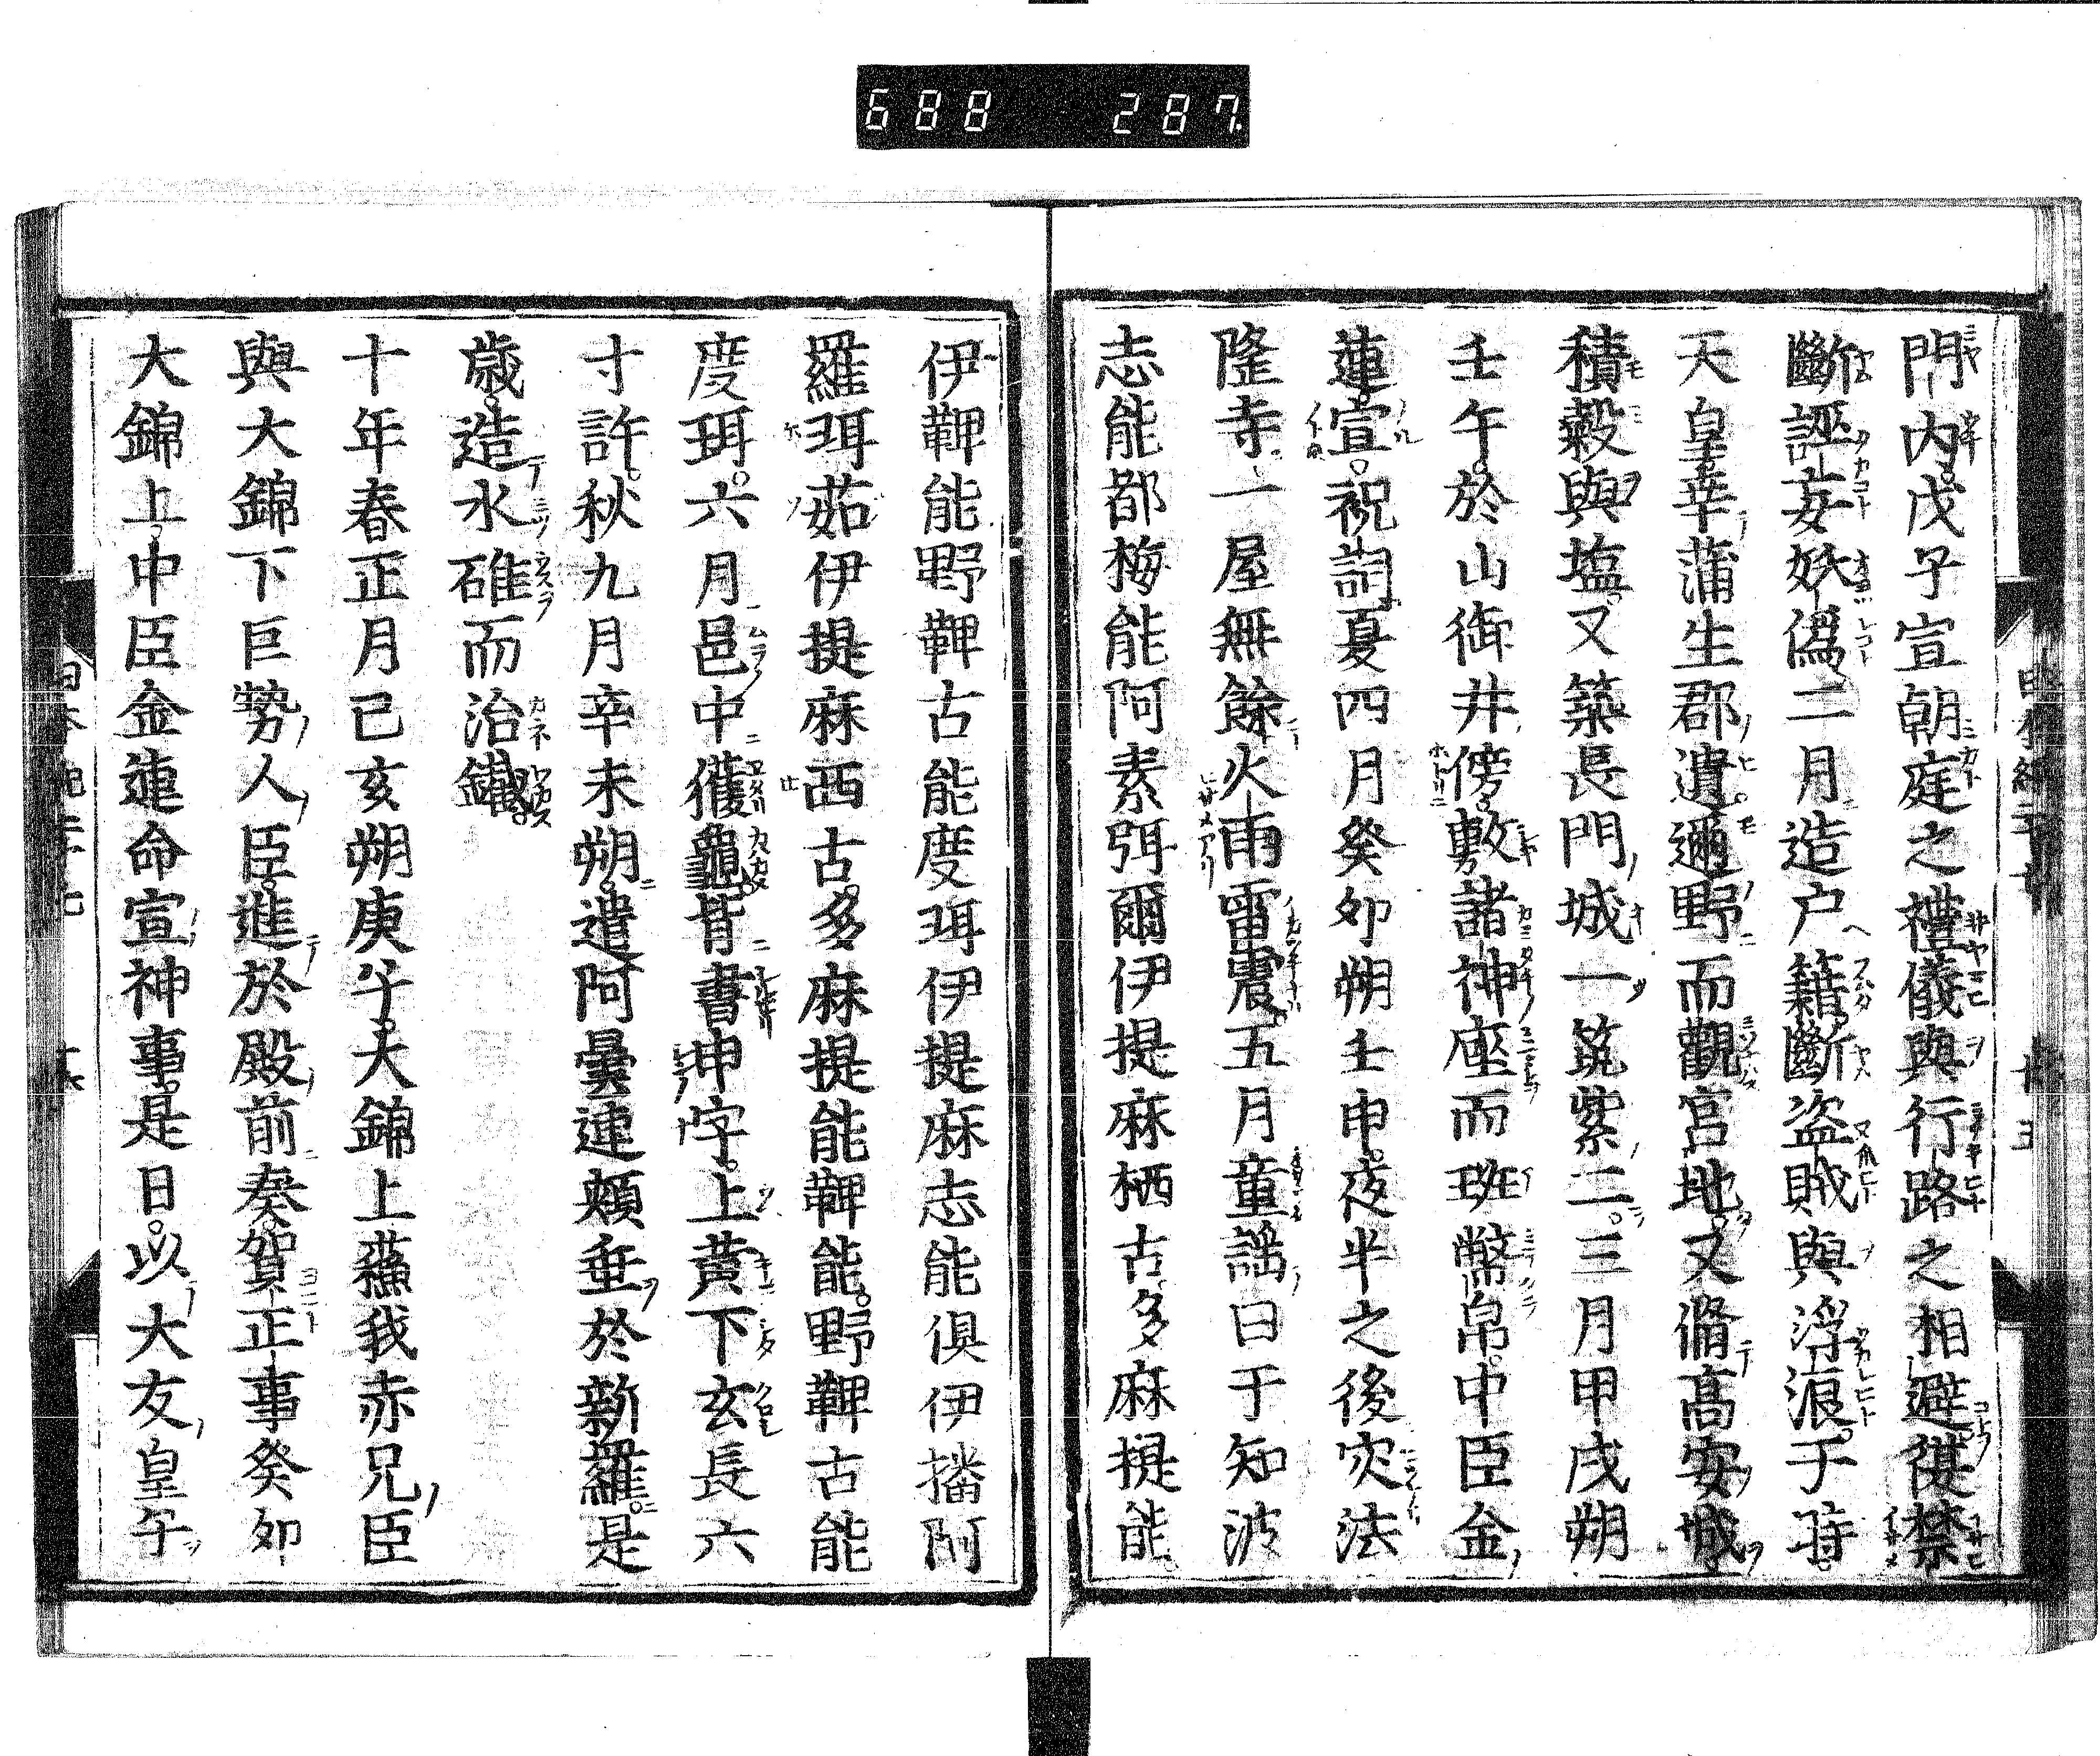 688 287.
門内戊子宣朝庭之禮儀與行路之相避復禁
斷誣妄妖僞二月造戸籍斷盗賊與浮浪于時
天皇幸蒲生郡遺邇野而觀宮地又脩髙安城
積糓與塩又築長門城一筑紫二三月甲戌朔
壬午於山御井傍敷諸神座而班幣帛中臣金
蓮宣祝詞夏四月癸卯朔壬申夜半之後灾法
隆寺一屋無餘火雨雷震五月童謡曰于知波
志能都梅能阿素弭爾伊提麻栖古多麻提能
伊鞞能野鞞古能度珥伊提麻志能倶伊播阿
羅珥茹伊提麻西古多麻提能鞞能野鞞古能
度珥六月邑中獲龜背書申字上黄下玄長六
寸許秋九月辛未朔遣阿曇連頰垂於新羅是
歳造水碓而治鐵
十年春正月己亥朔庚子大錦上蘓我赤兄臣
與大錦下巨勢人臣進於殿前奏賀正事癸卯
大錦上中臣金連命宣神事是日以大友皇子